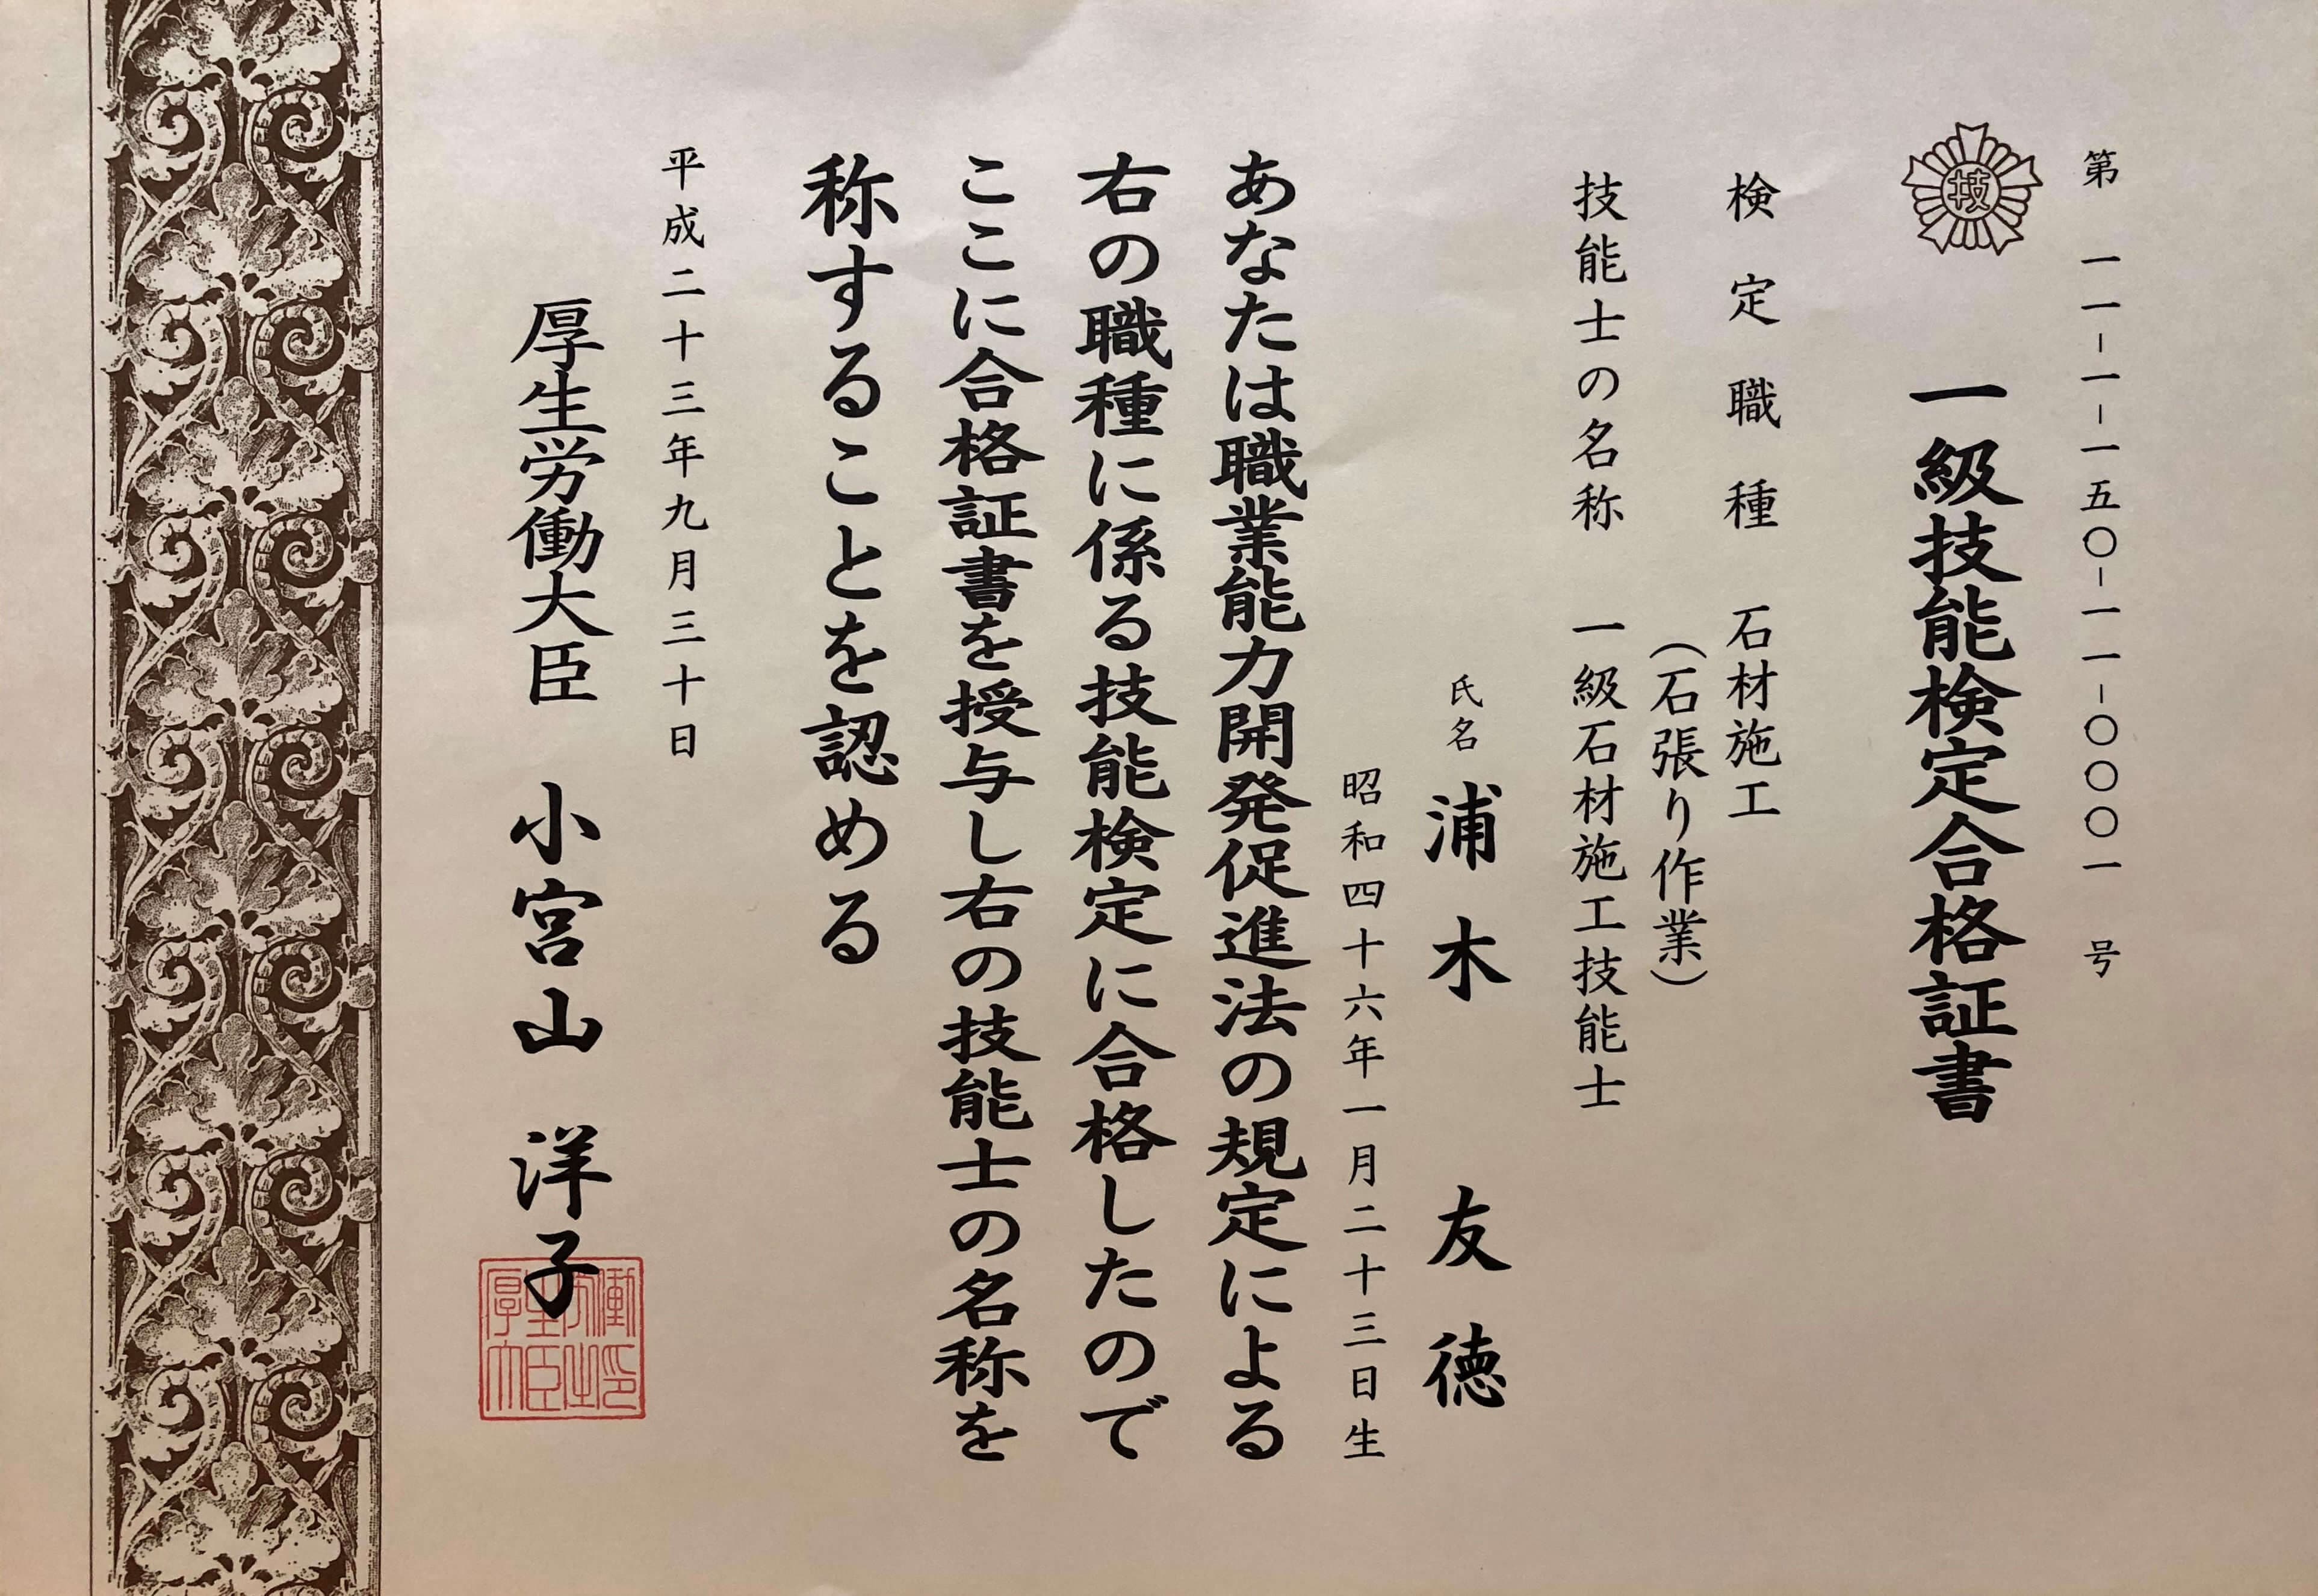 第一一-一-一五〇-一一-〇〇〇一号
技
一級技能検定合格証書
検定職種 石材施工
(石張り作業)
技能士の名称 一級石材施工技能士
氏名 浦木 友徳
昭和四十六年一月二十三日生
あなたは職業能力開発促進法の規定による
右の職種に係る技能検定に合格したので
ここに合格証書を授与し右の技能士の名称を
称することを認める
平成二十三年九月三十日
厚生労働大臣 小宮山 洋子
厚生労働
大臣之印